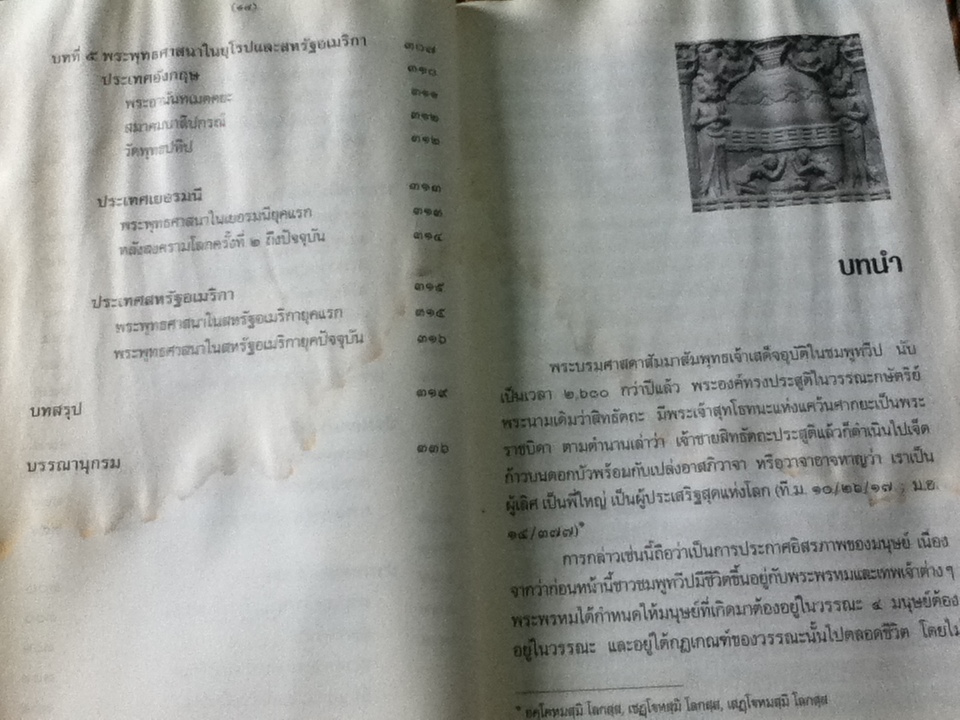 (๑๔)
บทที่ ๕ พระพุทธศาสนาในยุโรปและสหรัฐอเมริกา ๓๐๗
ประเทศอังกฤษ ๓๑๐
พระอานันทเมตเตยยะ ๓๑๑
สมาคมบาลีปกรณ์ ๓๑๒
วัดพุทธปทีป ๓๑๒
ประเทศเยอรมนี ๓๑๓
พระพุทธศาสนาในเยอรมนียุคแรก ๓๑๓
หลังสงครามโลกครั้งที่ ๒ ถึงปัจจุบัน ๓๑๔
ประเทศสหรัฐอเมริกา ๓๑๕
พระพุทธศาสนาในสหรัฐอเมริกายุคแรก ๓๑๕
พระพุทธศาสนาในสหรัฐอเมริกายุคปัจจุบัน ๓๑๖
บทสรุป ๓๑๙
บรรณานุกรม ๓๓๖
บทนำ
พระบรมศาสดาสัมมาสัมพุทธเจ้าเสด็จอุบัติในชมพูทวีป นับ
เป็นเวลา ๒,๖๐๐ กว่าปีแล้ว พระองค์ทรงประสูติในวรรณะกษัตริย์
พระนามเดิมว่าสิทธัตถะ มีพระเจ้าสุทโธทนะแห่งแคว้นศากยะเป็นพระ
ราชบิดา ตามตำนานเล่าว่า เจ้าชายสิทธัตถะประสูติแล้วก็ดำเนินไปเจ็ด
ก้าวบนดอกบัวพร้อมกับเปล่งอาสภิวาจา หรือวาจาอาจหาญว่า เราเป็น
ผู้เลิศ เป็นพี่ใหญ่ เป็นผู้ประเสริฐสุดแห่งโลก (ที.ม. ๑๐/๒๖/๑๗ ; ม.อ.
๑๔/๓๗๗)*
การกล่าวเช่นนี้ถือว่าเป็นการประกาศอิสรภาพของมนุษย์ เนื่อง
จากว่าก่อนหน้านี้ชาวชมพูทวีปมีชีวิตขึ้นอยู่กับพระพรหมและเทพเจ้าต่างๆ
พระพรหมได้กำหนดให้มนุษย์ที่เกิดมาต้องอยู่ในวรรณะ ๔ มนุษย์ต้อง
อยู่ในวรรณะ และอยู่ใต้กฎเกณฑ์ของวรรณะนั้นไปตลอดชีวิต โดยไม่
* อคฺโคหมสฺมิ โลกสฺส, เชฏฺโฐหมสฺมิ โลกสฺส, เสฏฺโฐหมสฺมิ โลกสฺส